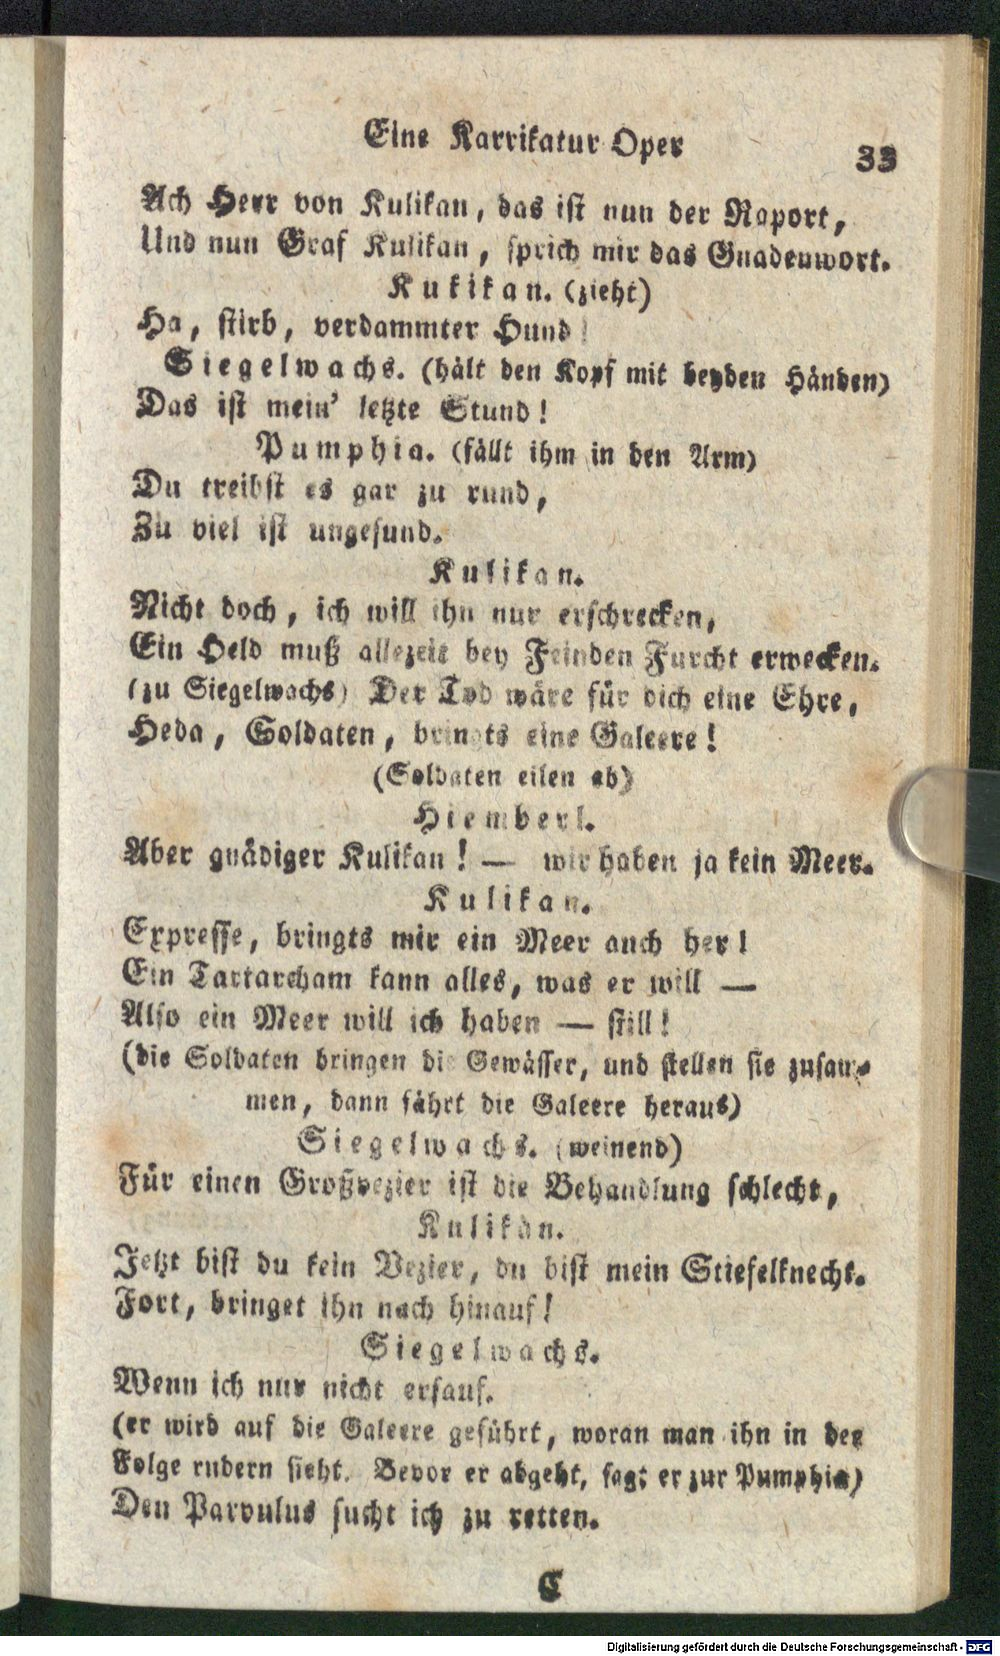 Eine Karrikatur Oper
33
Ach Herr von Kulikan, das ist nun der Raport,
Und nun Graf Kulikan, sprich mir das Gnadenwort.
Kukikan. (zieht)
Ha, stirb, verdammter Hund!
Siegelwachs. (hält den Kopf mit beyden Händen)
Das ist mein' letzte Stund!
Pumphia. (fällt ihm in den Arm)
Du treibst es gar zu rund,
Zu viel ist ungesund.
Kulikan.
Nicht doch, ich will ihn nur erschrecken,
Ein Held muß allezeit bey Feinden Furcht erwecken.
(zu Siegelwachs) Der Tod wäre für dich eine Ehre,
Heda, Soldaten, bringts eine Galeere!
(Soldaten eilen ab)
Hiemberl.
Aber gnädiger Kulikan! — wir haben ja kein Meer.
Kulikan.
Expresse, bringts mir ein Meer auch her!
Ein Tartarcham kann alles, was er will —
Also ein Meer will ich haben — still!
(die Soldaten bringen die Gewässer, und stellen sie zusam-
men, dann fährt die Galeere heraus)
Siegelwachs. (weinend)
Für einen Großvezier ist die Behandlung schlecht,
Kulikan.
Jetzt bist du kein Vezier, du bist mein Stiefelknecht.
Fort, bringet ihn nach hinauf!
Siegelwachs.
Wenn ich nur nicht ersauf.
(er wird auf die Galeere geführt, woran man ihn in der
Folge rudern sieht. Bevor er abgeht, sagt er zur Pumphia)
Den Parvulus sucht ich zu retten.
C
Digitalisierung gefördert durch die Deutsche Forschungsgemeinschaft - DFG